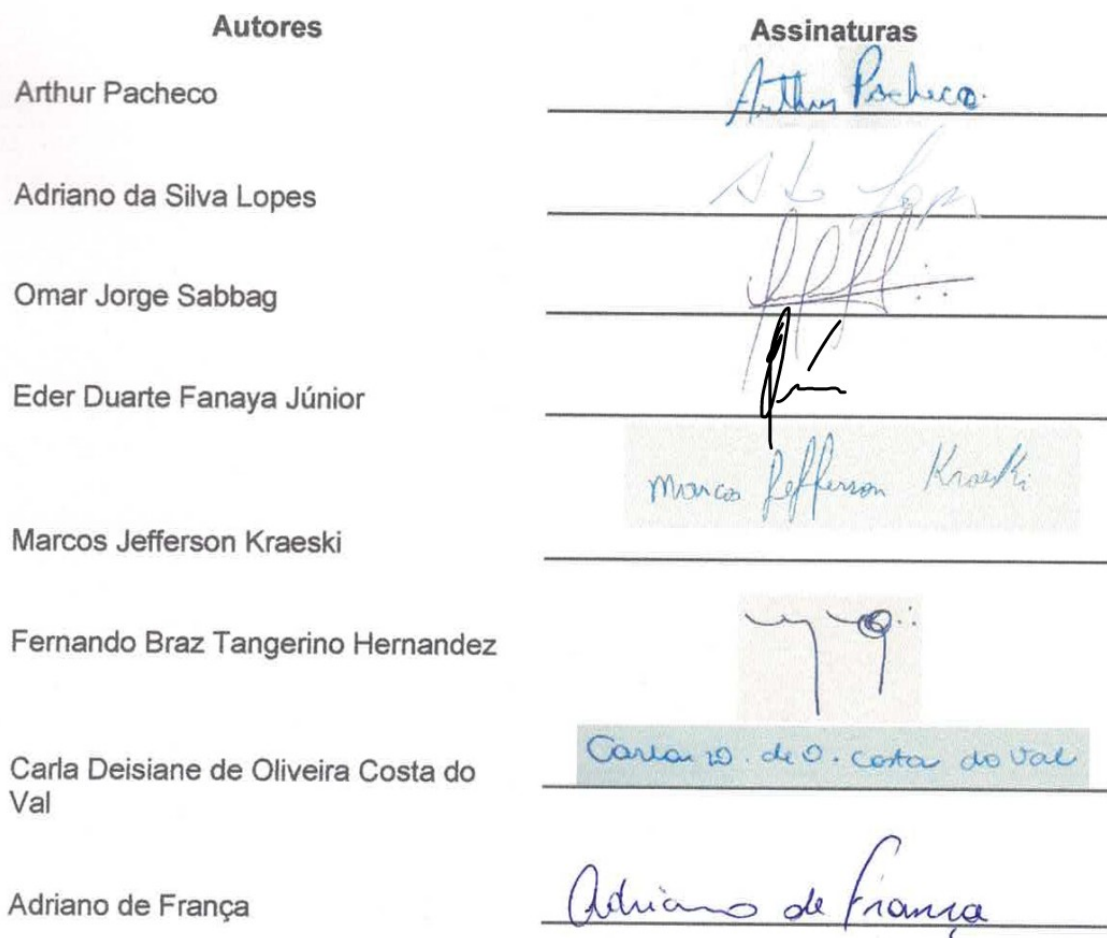 Autores
Assinaturas
Arthur Pacheco
Arthur Pacheco.
Adriano da Silva Lopes
Lopes
Omar Jorge Sabbag
Eder Duarte Fanaya Júnior
Marcos Jefferson Kraeski
Marcos Jefferson Kraeski
Fernando Braz Tangerino Hernandez
Carla D. de O. Costa do Val
Carla Deisiane de Oliveira Costa do
Val
Adriano de França
Adriano de França